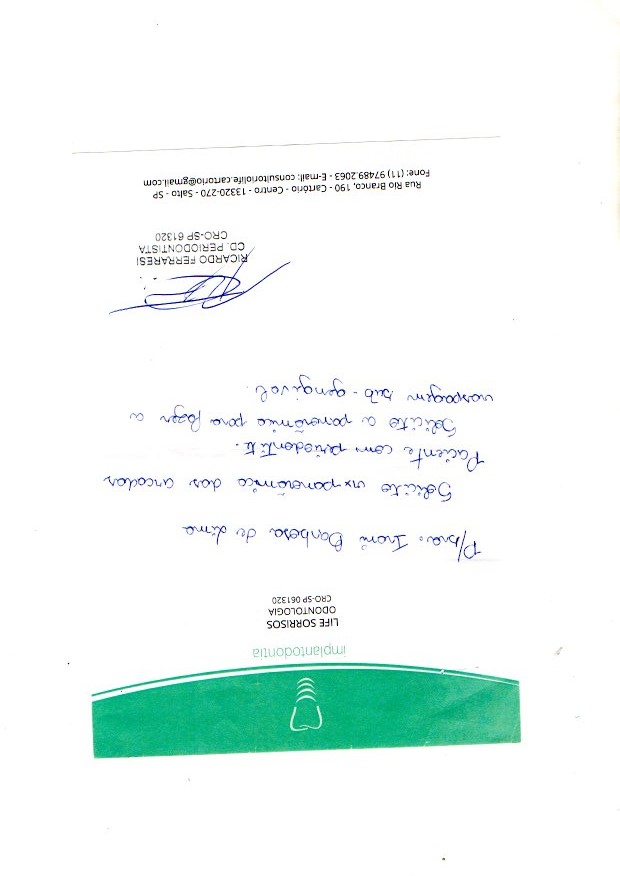 implantodontia
LIFE SORRISOS
ODONTOLOGIA
CRO-SP 061320
P/ Sra. Irani Barbosa de Lima
Solicito rx panorâmica das arcadas
Paciente com periodontite.
Solicito a panorâmica para fazer a
raspagem sub-gengival.
RICARDO FERRARESI
CD. PERIODONTISTA
CRO-SP 61320
Rua Rio Branco, 190 - Cartório - Centro - 13320-270 - Salto - SP
Fone: (11) 97489.2063 - E-mail: consultoriolife.cartorio@gmail.com